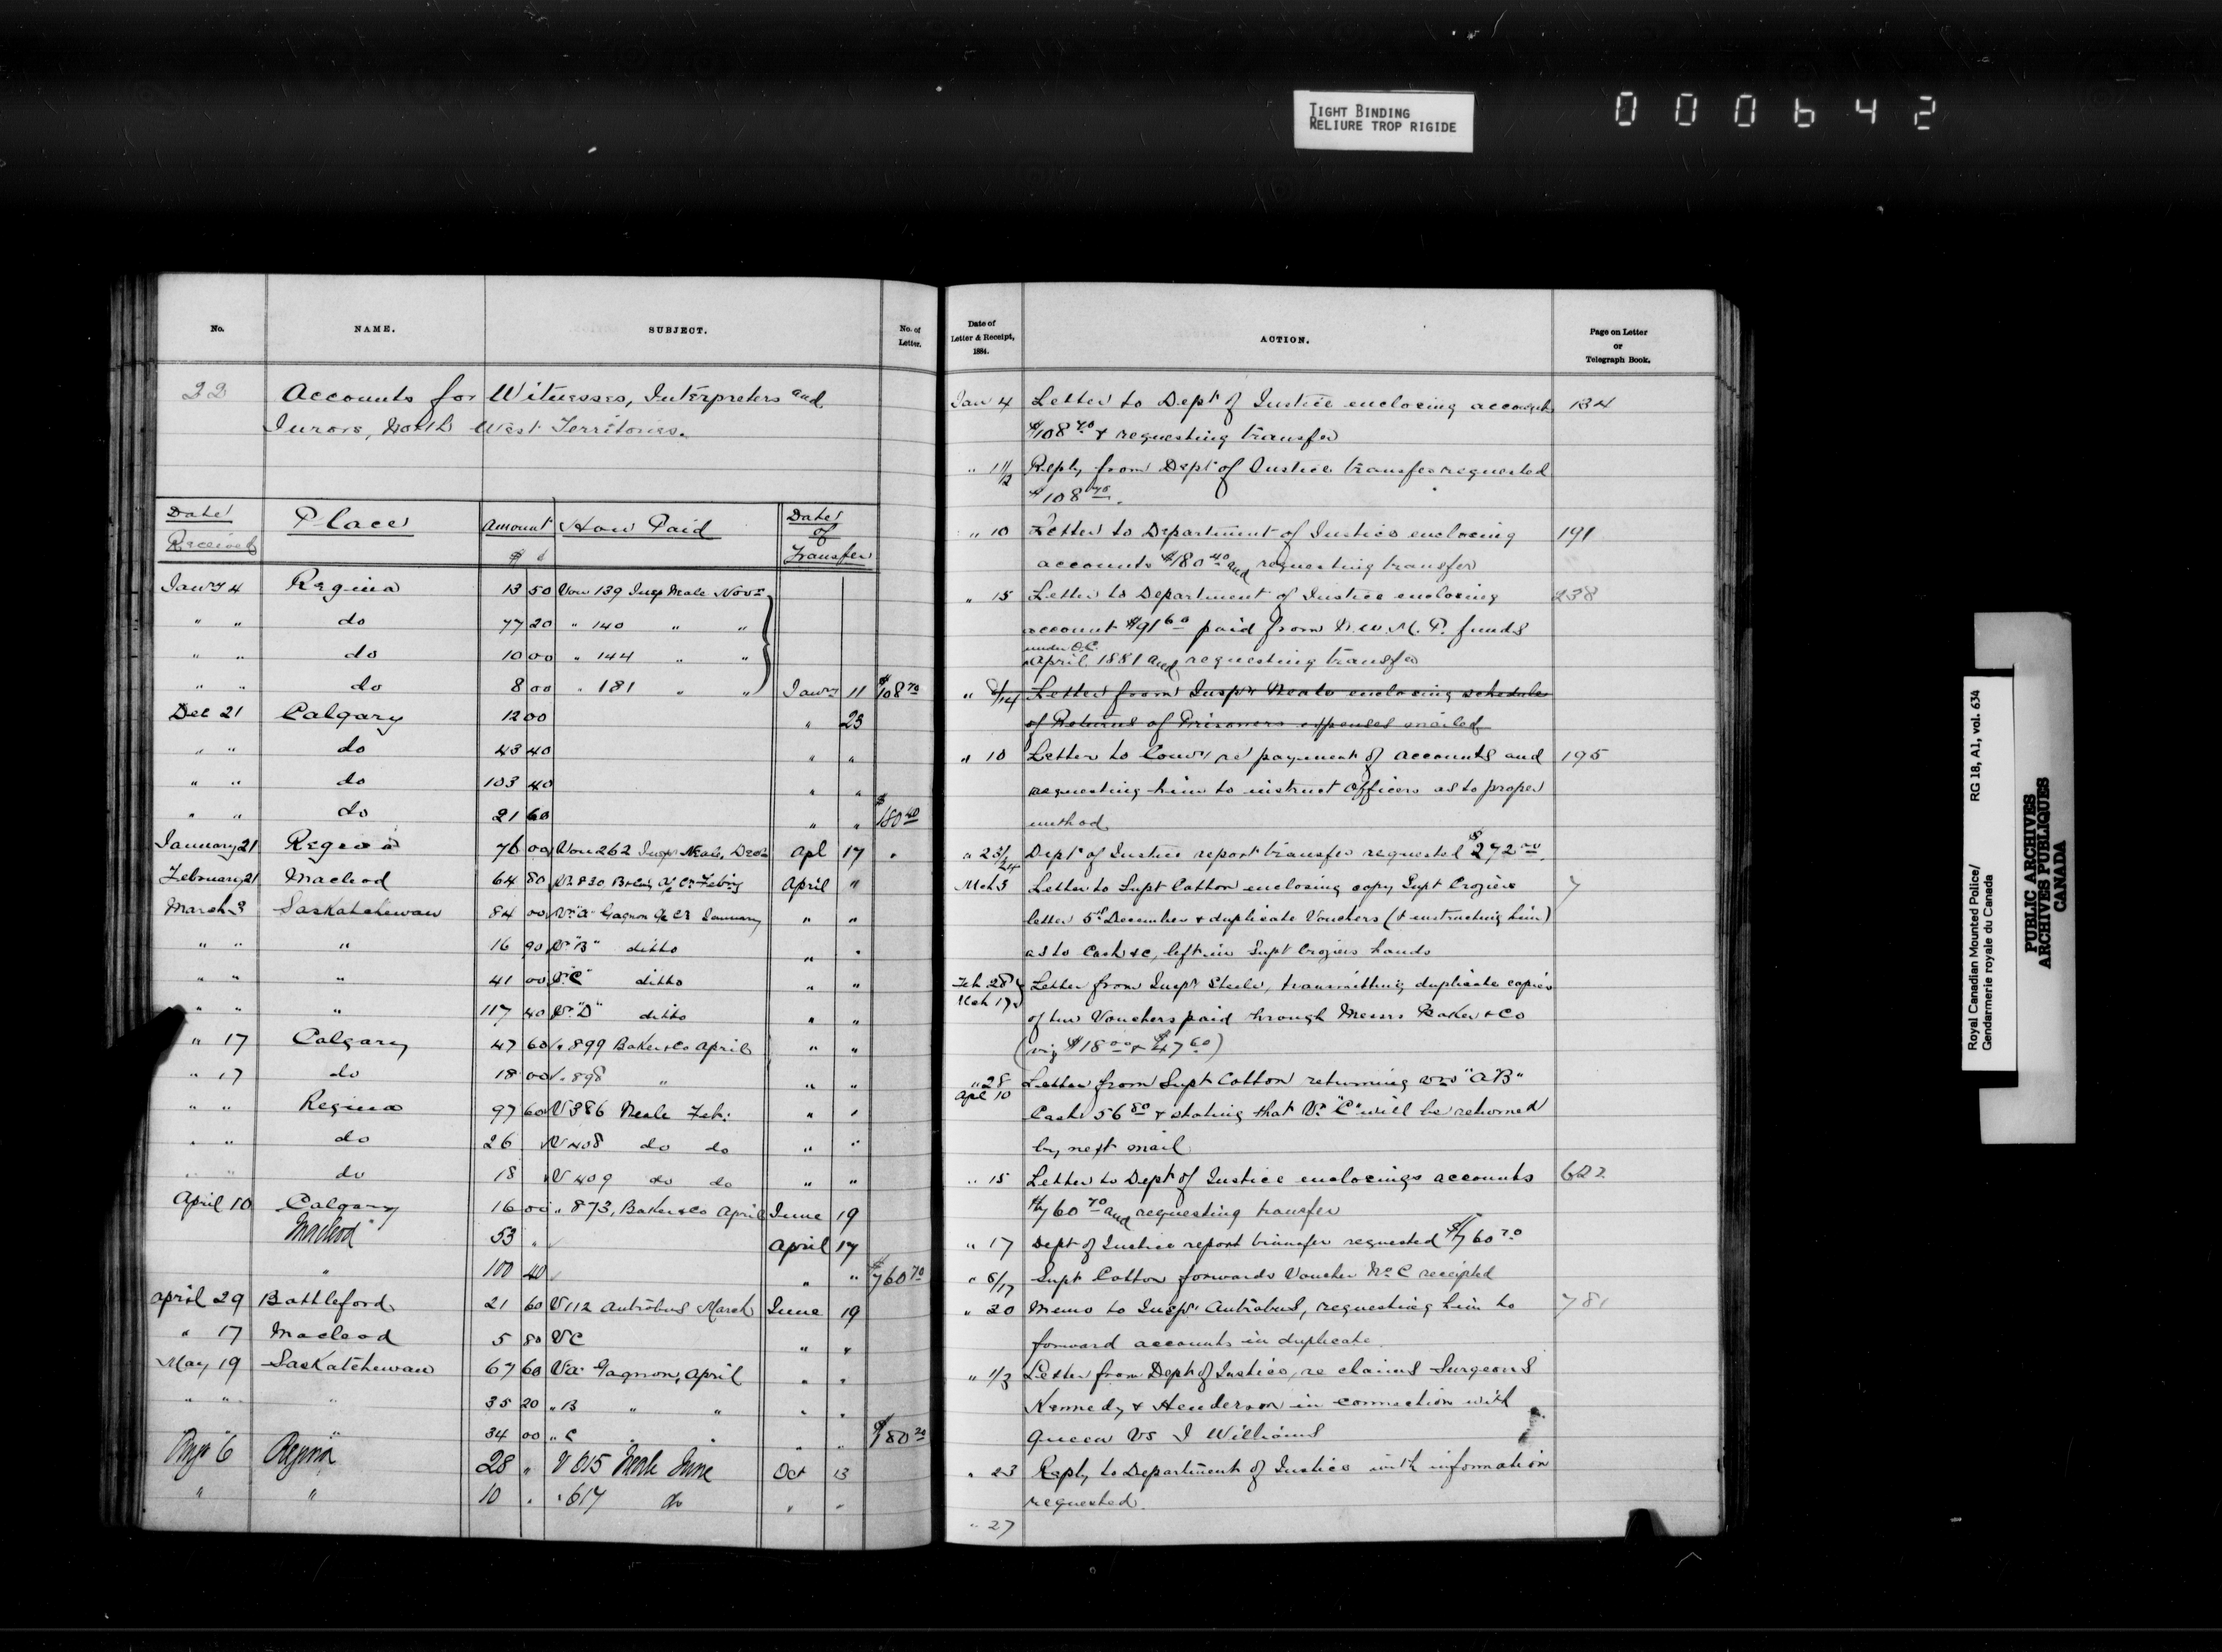 TIGHT BINDING
RELIURE TROP RIGIDE
000642
No.
NAME.
SUBJECT.
No. of
Letter.
22
Accounts for Witnesses, Interpreters and
Jurors, North West Territories.
Date Received
Place
Amount
$ c
How Paid
Date of Transfer
Jany 4 Regina 13 50 Vou 139 Insp Neale Novr
" " do 77 20 " 140 " "
" " do 10 00 " 144 " "
" " do 8 00 " 181 " " Jany 11 $108 70
Dec 21 Calgary 12 00 " 23
" " do 43 40 " "
" " do 103 40 " "
" " do 21 60 " " $180 40
January 21 Regina 76 00 Vou 262 Insp Neale, Decr Apl 17 "
February 21 Macleod 64 80 Vr. 830 April "
March 3 Saskatchewan 84 00 Vr "A" Gagnon January " "
" " " 16 90 Vr "B" ditto " "
" " " 41 00 Vr "C" ditto " "
" " " 117 40 Vr "D" ditto " "
" 17 Calgary 47 60 Vr 899 Baker & Co April " "
" 17 do 18 00 Vr 898 " " "
" " Regina 97 60 V 386 Neale Feb: " "
" " do 26 V 408 do do " "
" " do 18 V 409 do do " "
April 10 Calgary 16 00 " 873, Baker & Co April June 19
Macleod 53 " April 17
" 100 40 " " $760 70
April 29 Battleford 21 60 V 112 Antrobus March June 19
" 17 Macleod 5 80 V C " "
May 19 Saskatchewan 67 60 V a Gagnon, April " "
" " " 35 20 " B " " " "
" " " 34 00 " C " " " " $180 20
6 Regina 28 " V 615 Neale June Oct 13
" " 10 " " 617 do " "
Date of
Letter & Receipt,
1884.
ACTION.
Page on Letter
or
Telegraph Book.
Jan 4 Letter to Dept of Justice enclosing accounts 134
$108 70 & requesting transfer
" 11/12 Reply from Dept of Justice transfer requested
$108 70.
" 10 Letter to Department of Justice enclosing 191
accounts $180 40 and requesting transfer
" 15 Letter to Department of Justice enclosing 238
account $91 60 paid from N.W.M.P. funds
under O.C.
April 1881 and requesting transfer
" Letter from Inspr Neale enclosing schedule
of Returns of Prisoners expenses mailed
" 10 Letter to Comr re payment of accounts and 195
requesting him to instruct Officers as to proper
method
" 23/24 Dept of Justice report transfer requested $272
Mch 3 Letter to Supt Cotton enclosing copy Supt Croziers 7
letter 5th December & duplicate Vouchers (& instructing him)
as to Cash &c, left in Supt Croziers hands
Feb 28 Letter from Inspr Steele, transmitting duplicate copies
Mch 17
of two Vouchers paid through Messrs Baker & Co
(viz $18 00 & $47 60)
" 28 Letter from Supt Cotton returning "A B"
Apl 10
Cash 56 80 & stating that Vr "C" will be returned
by next mail
" 15 Letter to Dept of Justice enclosing accounts 622
$760 70 and requesting transfer
" 17 Dept of Justice report transfer requested $760 70
" 6/17 Supt Cotton forwards Voucher No C receipted
" 20 Memo to Inspr Antrobus, requesting him to 781
forward accounts in duplicate
" 1/3 Letter from Dept of Justice, re claims Surgeons
Kennedy & Henderson in connection with
Queen vs J Williams
" 23 Reply to Department of Justice with information
requested.
" 27
Royal Canadian Mounted Police/ RG 18, A1, vol. 634
Gendarmerie royale du Canada
PUBLIC ARCHIVES
ARCHIVES PUBLIQUES
CANADA